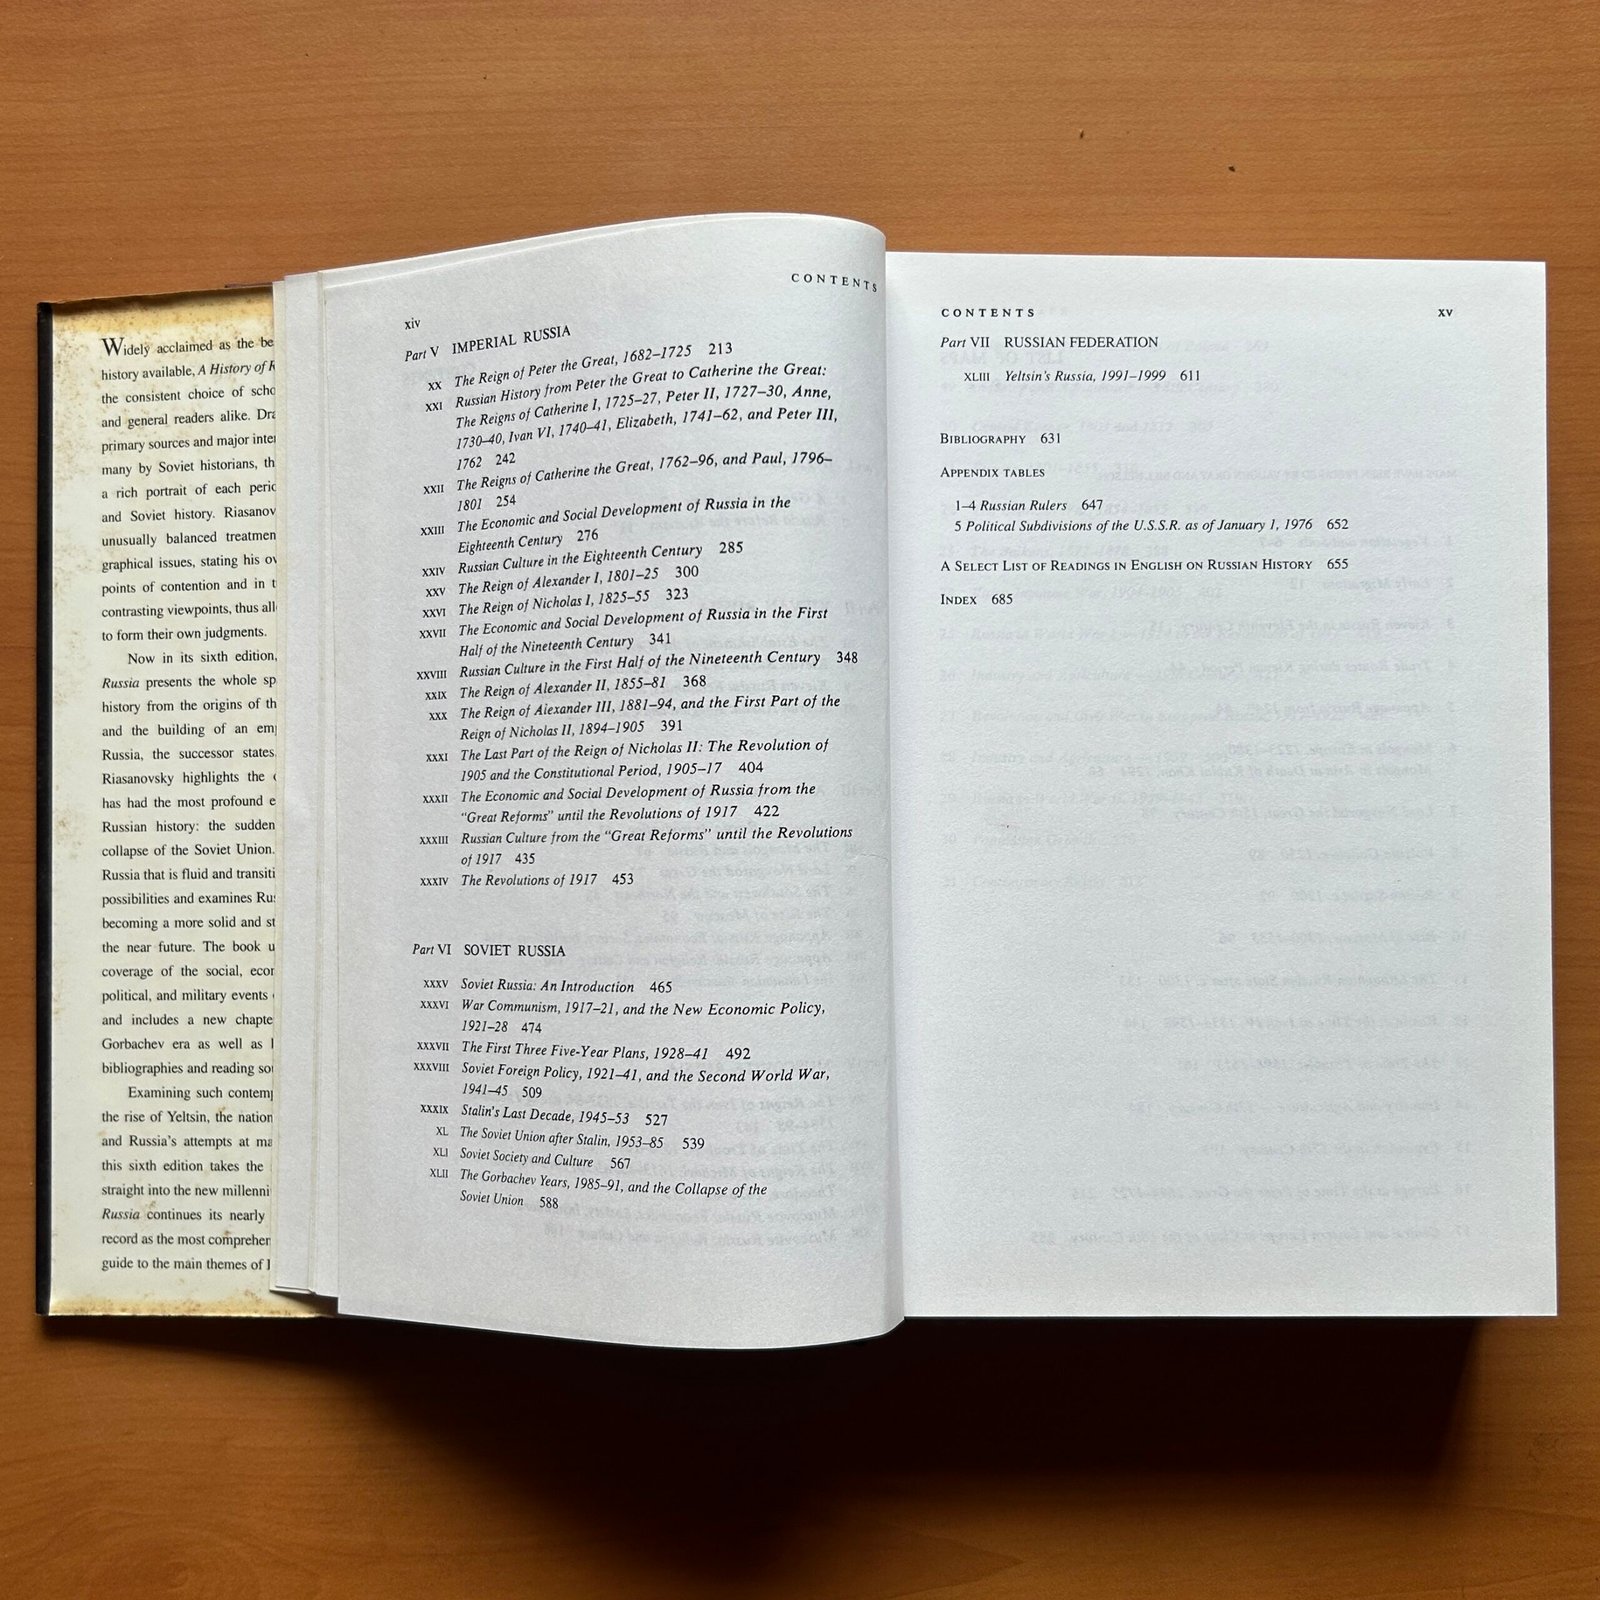 Widely acclaimed as the be
history available, A History of R
the consistent choice of scho
and general readers alike. Dra
primary sources and major inter
many by Soviet historians, th
a rich portrait of each peric
and Soviet history. Riasanov
unusually balanced treatmen
graphical issues, stating his ov
points of contention and in t
contrasting viewpoints, thus all
to form their own judgments.
Now in its sixth edition,
Russia presents the whole sp
history from the origins of th
and the building of an emp
Russia, the successor states
Riasanovsky highlights the
has had the most profound e
Russian history: the sudden
collapse of the Soviet Union.
Russia that is fluid and transiti
possibilities and examines Rus
becoming a more solid and st
the near future. The book u
coverage of the social, econ
political, and military events
and includes a new chapte
Gorbachev era as well as
bibliographies and reading so
Examining such contemp
the rise of Yeltsin, the nation
and Russia's attempts at ma
this sixth edition takes the
straight into the new millenni
Russia continues its nearly
record as the most comprehen
guide to the main themes of
xiv CONTENTS
Part V IMPERIAL RUSSIA
XX The Reign of Peter the Great, 1682–1725 213
XXI Russian History from Peter the Great to Catherine the Great:
The Reigns of Catherine I, 1725–27, Peter II, 1727–30, Anne,
1730–40, Ivan VI, 1740–41, Elizabeth, 1741–62, and Peter III,
1762 242
XXII The Reigns of Catherine the Great, 1762–96, and Paul, 1796–
1801 254
XXIII The Economic and Social Development of Russia in the
Eighteenth Century 276
XXIV Russian Culture in the Eighteenth Century 285
XXV The Reign of Alexander I, 1801–25 300
XXVI The Reign of Nicholas I, 1825–55 323
XXVII The Economic and Social Development of Russia in the First
Half of the Nineteenth Century 341
XXVIII Russian Culture in the First Half of the Nineteenth Century 348
XXIX The Reign of Alexander II, 1855–81 368
XXX The Reign of Alexander III, 1881–94, and the First Part of the
Reign of Nicholas II, 1894–1905 391
XXXI The Last Part of the Reign of Nicholas II: The Revolution of
1905 and the Constitutional Period, 1905–17 404
XXXII The Economic and Social Development of Russia from the
“Great Reforms” until the Revolutions of 1917 422
XXXIII Russian Culture from the “Great Reforms” until the Revolutions
of 1917 435
XXXIV The Revolutions of 1917 453
Part VI SOVIET RUSSIA
XXXV Soviet Russia: An Introduction 465
XXXVI War Communism, 1917–21, and the New Economic Policy,
1921–28 474
XXXVII The First Three Five-Year Plans, 1928–41 492
XXXVIII Soviet Foreign Policy, 1921–41, and the Second World War,
1941–45 509
XXXIX Stalin's Last Decade, 1945–53 527
XL The Soviet Union after Stalin, 1953–85 539
XLI Soviet Society and Culture 567
XLII The Gorbachev Years, 1985–91, and the Collapse of the
Soviet Union 588
CONTENTS xv
Part VII RUSSIAN FEDERATION
XLIII Yeltsin's Russia, 1991–1999 611
BIBLIOGRAPHY 631
APPENDIX TABLES
1–4 Russian Rulers 647
5 Political Subdivisions of the U.S.S.R. as of January 1, 1976 652
A SELECT LIST OF READINGS IN ENGLISH ON RUSSIAN HISTORY 655
INDEX 685